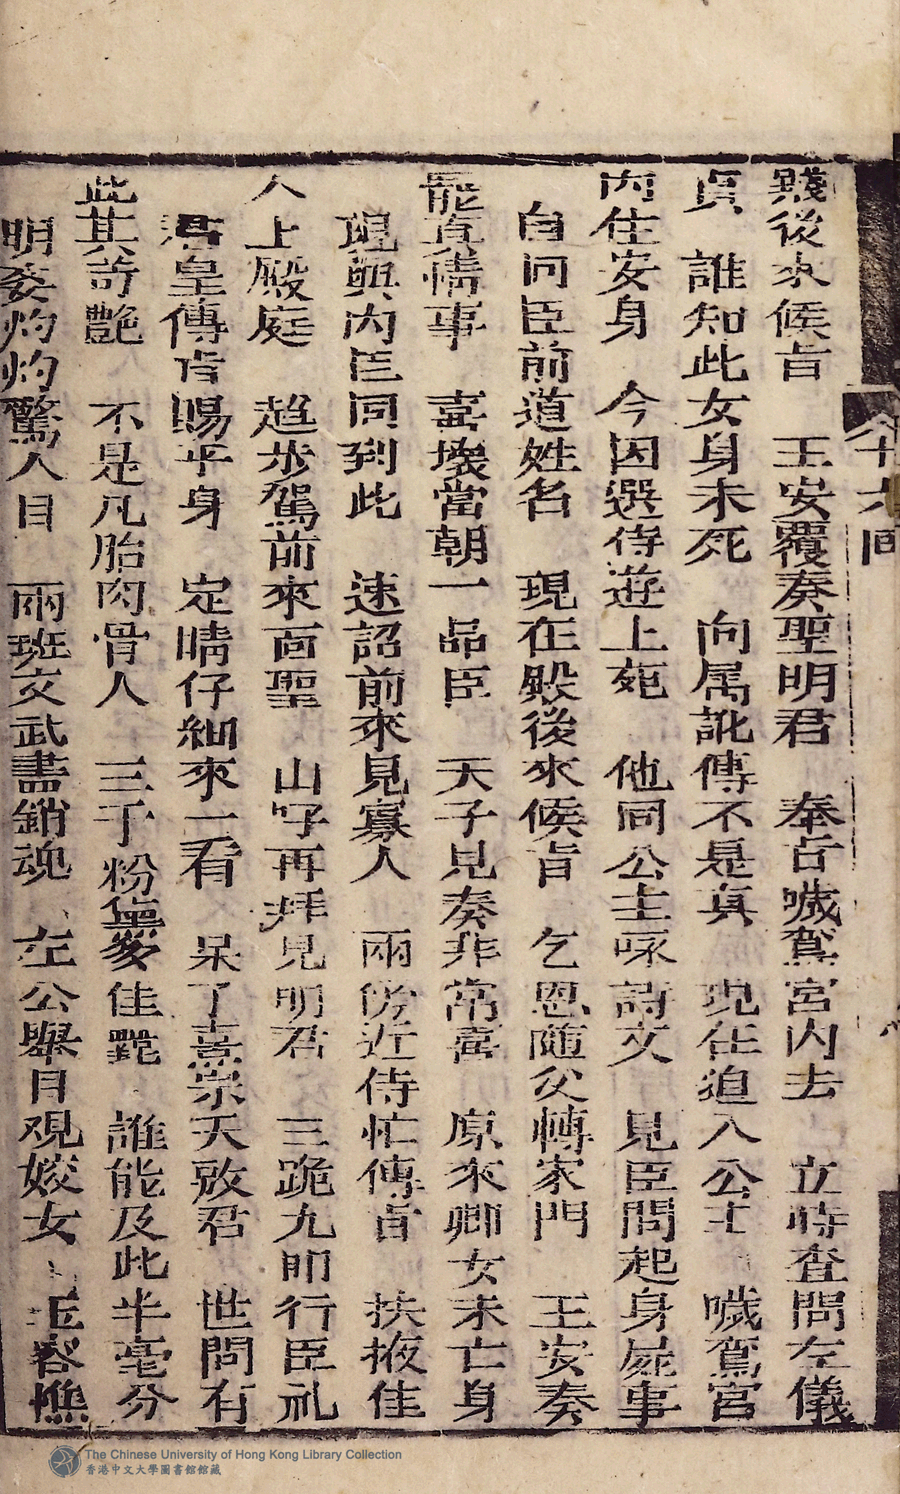 殿後來候旨　王安覆奏聖明君　奉旨噦鸞宮內去　立時查問左儀
貞　誰知此女身未死　向属訛傳不是真　現在迫入公主　噦鸞宮
內住安身　今因選侍遊上苑　他同公主咏詩文　見臣問起身屍事
自问臣前道姓名　現在殿後來候旨　乞恩随父轉家門　王安奏
罷真情事　喜壞當朝一品臣　天子見奏非常喜　原來卿女未亡身
現與內臣同到此　速詔前來見寡人　兩傍近侍忙傳旨　扶掖佳
人上殿庭　趋步駕前來面聖　山呼再拜見明君　三跪九叩行臣礼
君皇傳旨賜平身　定晴仔細來一看　呆了熹宗天啟君　世間有
此其許艷　不是凡胎肉骨人　三千粉黛多佳麗　誰能及此半毫分
明姿灼灼驚人目　兩班文武盡銷魂　左公舉目观姣女　玉容憔
十九回
The Chinese University of Hong Kong Library Collection
香港中文大學圖書館館藏